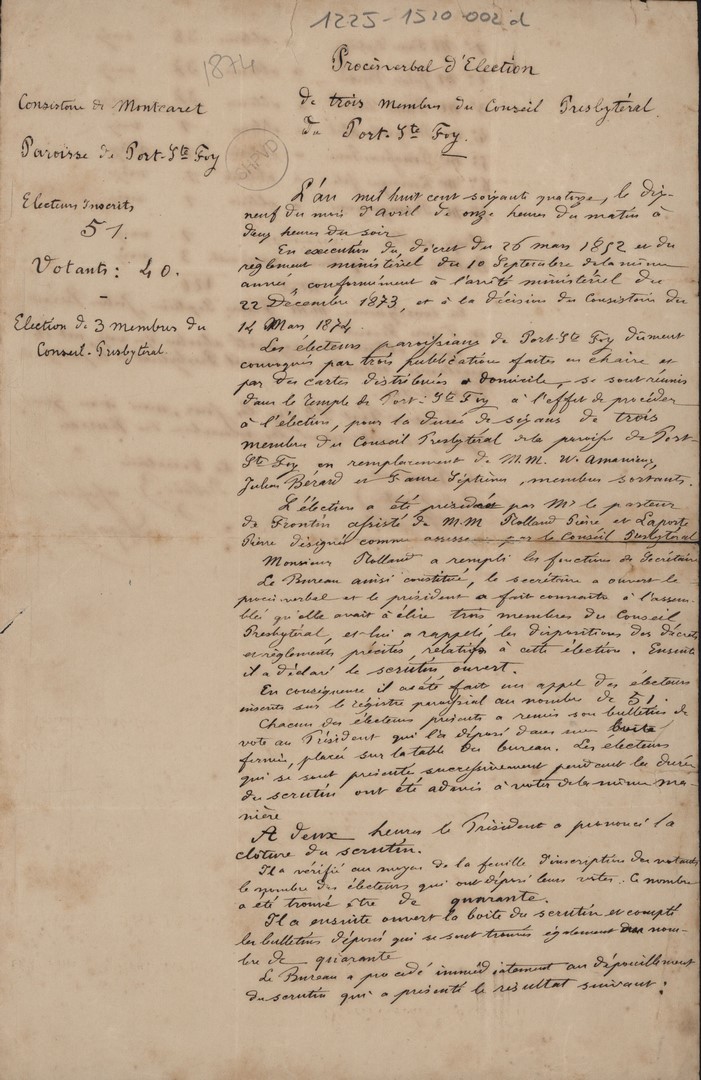 1225-1510 002 d
1874
Procès verbal d'Election
de trois membres du Conseil Presbytéral
du Port-Ste Foy.
Consistoire de Montcaret
Paroisse de Port-Ste Foy
Electeurs Inscrits
51.
Votants : 40.
Election de 3 membres du
Conseil-Presbytéral.
L'an mil huit cent soixante quatorze, le dix-
neuf du mois d'Avril de onze heures du matin à
deux heures du soir
En exécution du décret du 26 mars 1852 et du
règlement ministériel du 10 Septembre de la même
année, conformément à l'arrêté ministériel du
22 Décembre 1873, et à la décision du Consistoire du
14 Mars 1874.
Les électeurs paroissiaux de Port-Ste Foy dûment
convoqués par trois publications faites en chaire et
par des cartes distribuées à domicile, se sont réunis
dans le Temple de Port-Ste Foy à l'effet de procéder
à l'élection, pour la durée de six ans de trois
membres du Conseil Presbytéral de la paroisse de Port-
Ste Foy en remplacement de M.M. W. Amanieux,
Julien Bérard et Faure Septième, membres sortants.
L'élection a été présidée par Mr le pasteur
de Frontin assisté de M.M Rolland Pierre et Laporte
Pierre désignés comme assesse par le Conseil Presbytéral
Monsieur Rolland a rempli les fonctions de Secrétaire
Le Bureau ainsi constitué, le secrétaire a ouvert le
procès verbal et le président a fait connaitre à l'assem-
blée qu'elle avait à élire trois membres du Conseil
Presbytéral, et lui a rappelé les dispositions des décrets
et règlements précités, relatifs à cette élection. Ensuite
il a déclaré le scrutin ouvert.
En conséquence il a été fait un appel des électeurs
inscrits sur le régistre paroissial au nombre de 51.
Chacun des électeurs présents a remis son bulletin de
vote au Président qui l'a déposé dans une boite
fermée, placée sur la table du bureau. Les électeurs
qui se sont présentés successivement pendant la durée
du scrutin ont été admis à voter de la même ma-
nière
A deux heures le Président a prononcé la
clôture du scrutin.
Il a vérifié au moyen de la feuille d'inscription des votants
le nombre des électeurs qui ont déposé leurs votes. Ce nombre
a été trouvé être de quarante.
Il a ensuite ouvert la boite du scrutin et compté
les bulletins déposés qui se sont trouvés également au nom-
bre de quarante
Le Bureau a procédé immédiatement au dépouillement
du scrutin qui a présenté le résultat suivant :